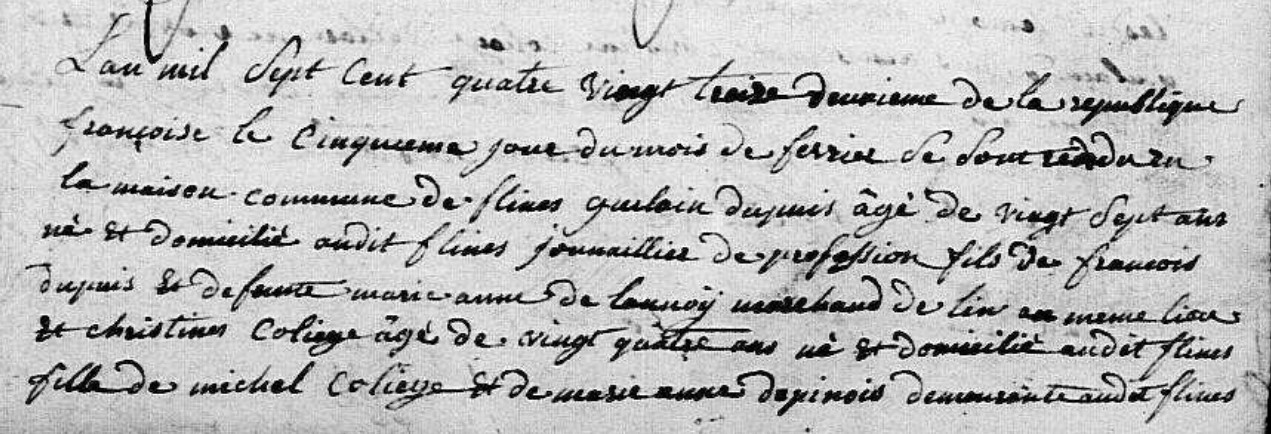 L'an mil sept cent quatre vingt treize deuxieme de la republique
françoise le cinquieme jour du mois de fevrier se sont rendu en
la maison commune de flines guilain dupuis âgé de vingt sept ans
né et domicilié audit flines journaillier de profession fils de francois
dupuis et defunte marie anne de lannoÿ marchand de lin au meme lieu
et christines Coliege âgé de vingt quatre ans né et domicilié audit flines
fille de michel Coliege et de marie anne depinois demeurante audit flines